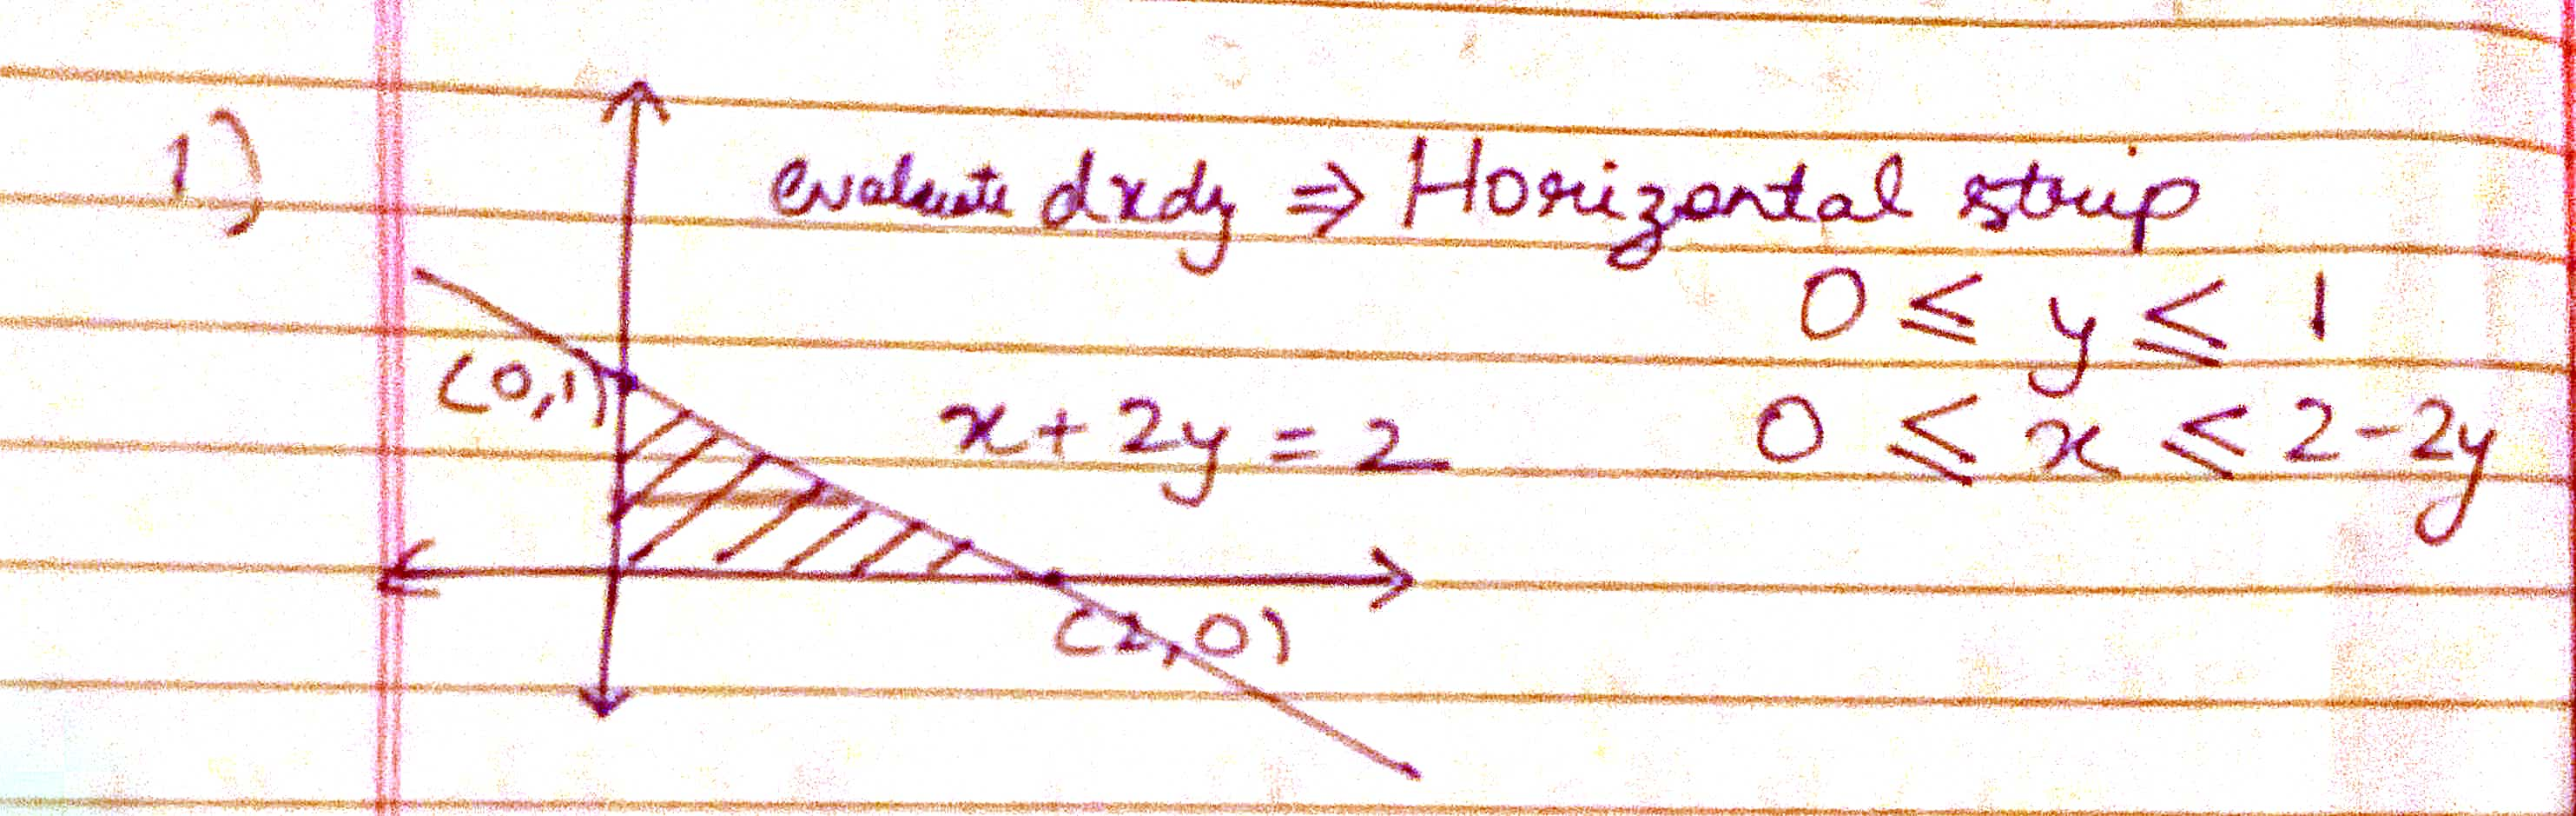 1)
evaluate dxdy ⇒ Horizontal strip
0 ≤ y ≤ 1
(0,1)
x + 2y = 2
0 ≤ x ≤ 2-2y
(2,0)